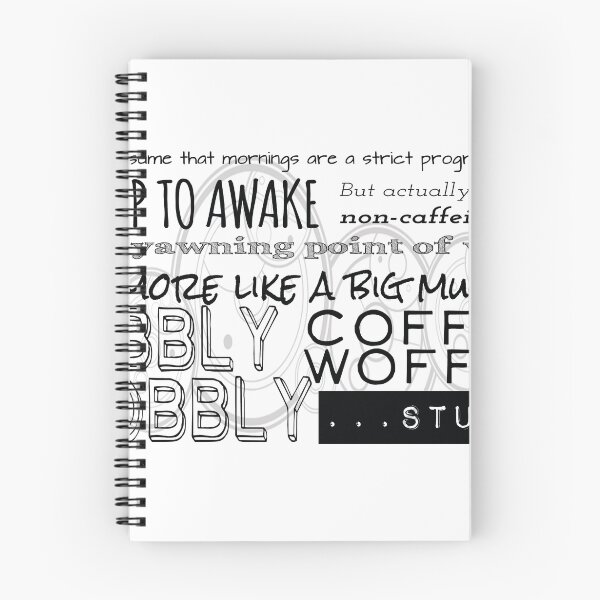 sume that mornings are a strict progr
P TO AWAKE
But actually
non-caffei
yawning point of v
MORE LIKE A BIG MU
BBLY COFF
WOFF
OBBLY ...STU